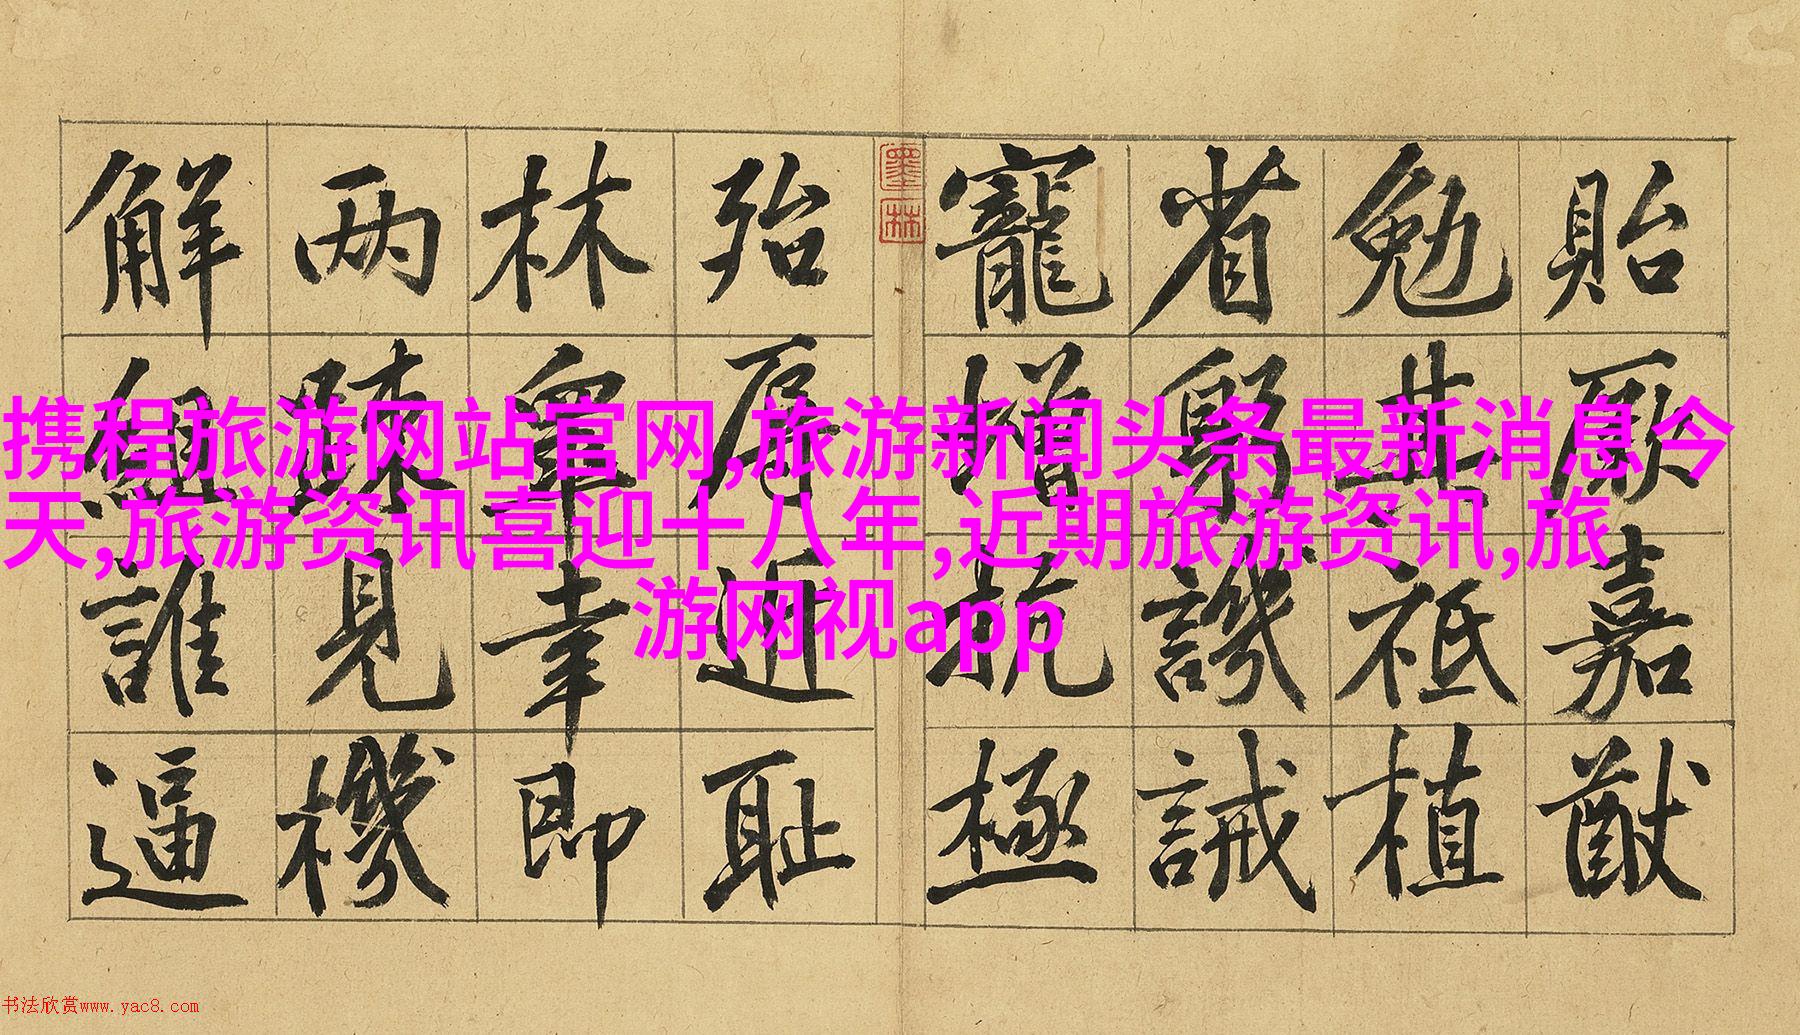 貽厥嘉猷
勉其祗植
省躬譏誡
寵增抗極
墨林
殆辱近耻
林皋幸即
两疎見機
解組誰逼
携程旅游网站官网,旅游新闻头条最新消息今
天,旅游资讯喜迎十八年,近期旅游资讯,旅
游网视app
书法欣赏www.yac8.com